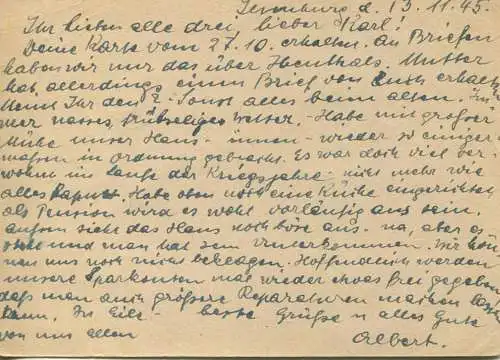 Ilmenburg d. 13.11.45.
Ihr lieben alle drei, lieber Karl!
Deine Karte vom 27.10. erhalten. An Briefen
haben wir nur das über Mutter
hat allerdings einen Brief von Euch erhalten
Sonst alles beim alten. Im-
mer nasses, trübseliges Wetter. Habe mit großer
Mühe unser Haus - innen - wieder so einiger-
maßen in Ordnung gebracht. Es war doch viel ver-
wohnt im Laufe der Kriegsjahre - nicht mehr wie
alles kaputt. Habe oben noch eine Küche eingerichtet
als Pension wird es wohl vorläufig aus sein.
außen sieht das Haus noch böse aus - na, aber es
steht und man hat sein Unterkommen. Wir kön-
nen uns noch nicht beklagen. Hoffentlich werden
unsere Sparkonten mal wieder etwas frei gegeben
daß man auch größere Reparaturen machen lassen
kann. In Eile - beste Grüße u alles Gute
von uns allen Albert.